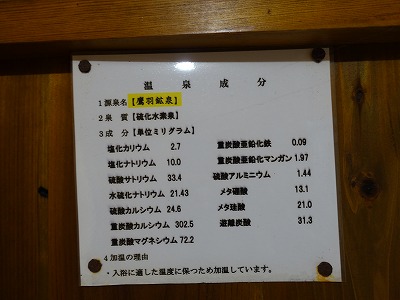 温泉成分
1源泉名【鷹羽鉱泉】
2泉 質【硫化水素泉】
3成 分【単位ミリグラム】
塩化カリウム 2.7
塩化ナトリウム 10.0
硫酸サトリウム 33.4
水硫化ナトリウム 21.43
硫酸カルシウム 24.6
重炭酸カルシウム 302.5
重炭酸マグネシウム 72.2
重炭酸亜鉛化鉄 0.09
重炭酸亜鉛化マンガン 1.97
硫酸アルミニウム 1.44
メタ硼酸 13.1
メタ珪酸 21.0
遊離炭酸 31.3
4加温の理由
・入浴に適した温度に保つため加温しています。